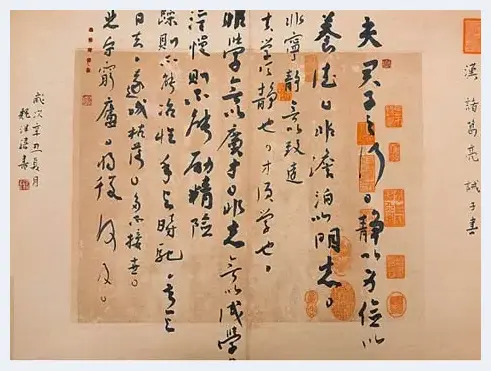 漢 諸葛亮 誡子書
夫君子之行。靜以身儉以
養德。非澹泊以明志。
非寧靜無以致遠
夫學須靜也。才須學也。
非學無以廣才。非志無以成學
淫慢則不能勵精險
躁則不能冶性年與時馳意與
日去。遂成枯落。多不接世。
悲守窮廬。將復何及。
歲次辛丑